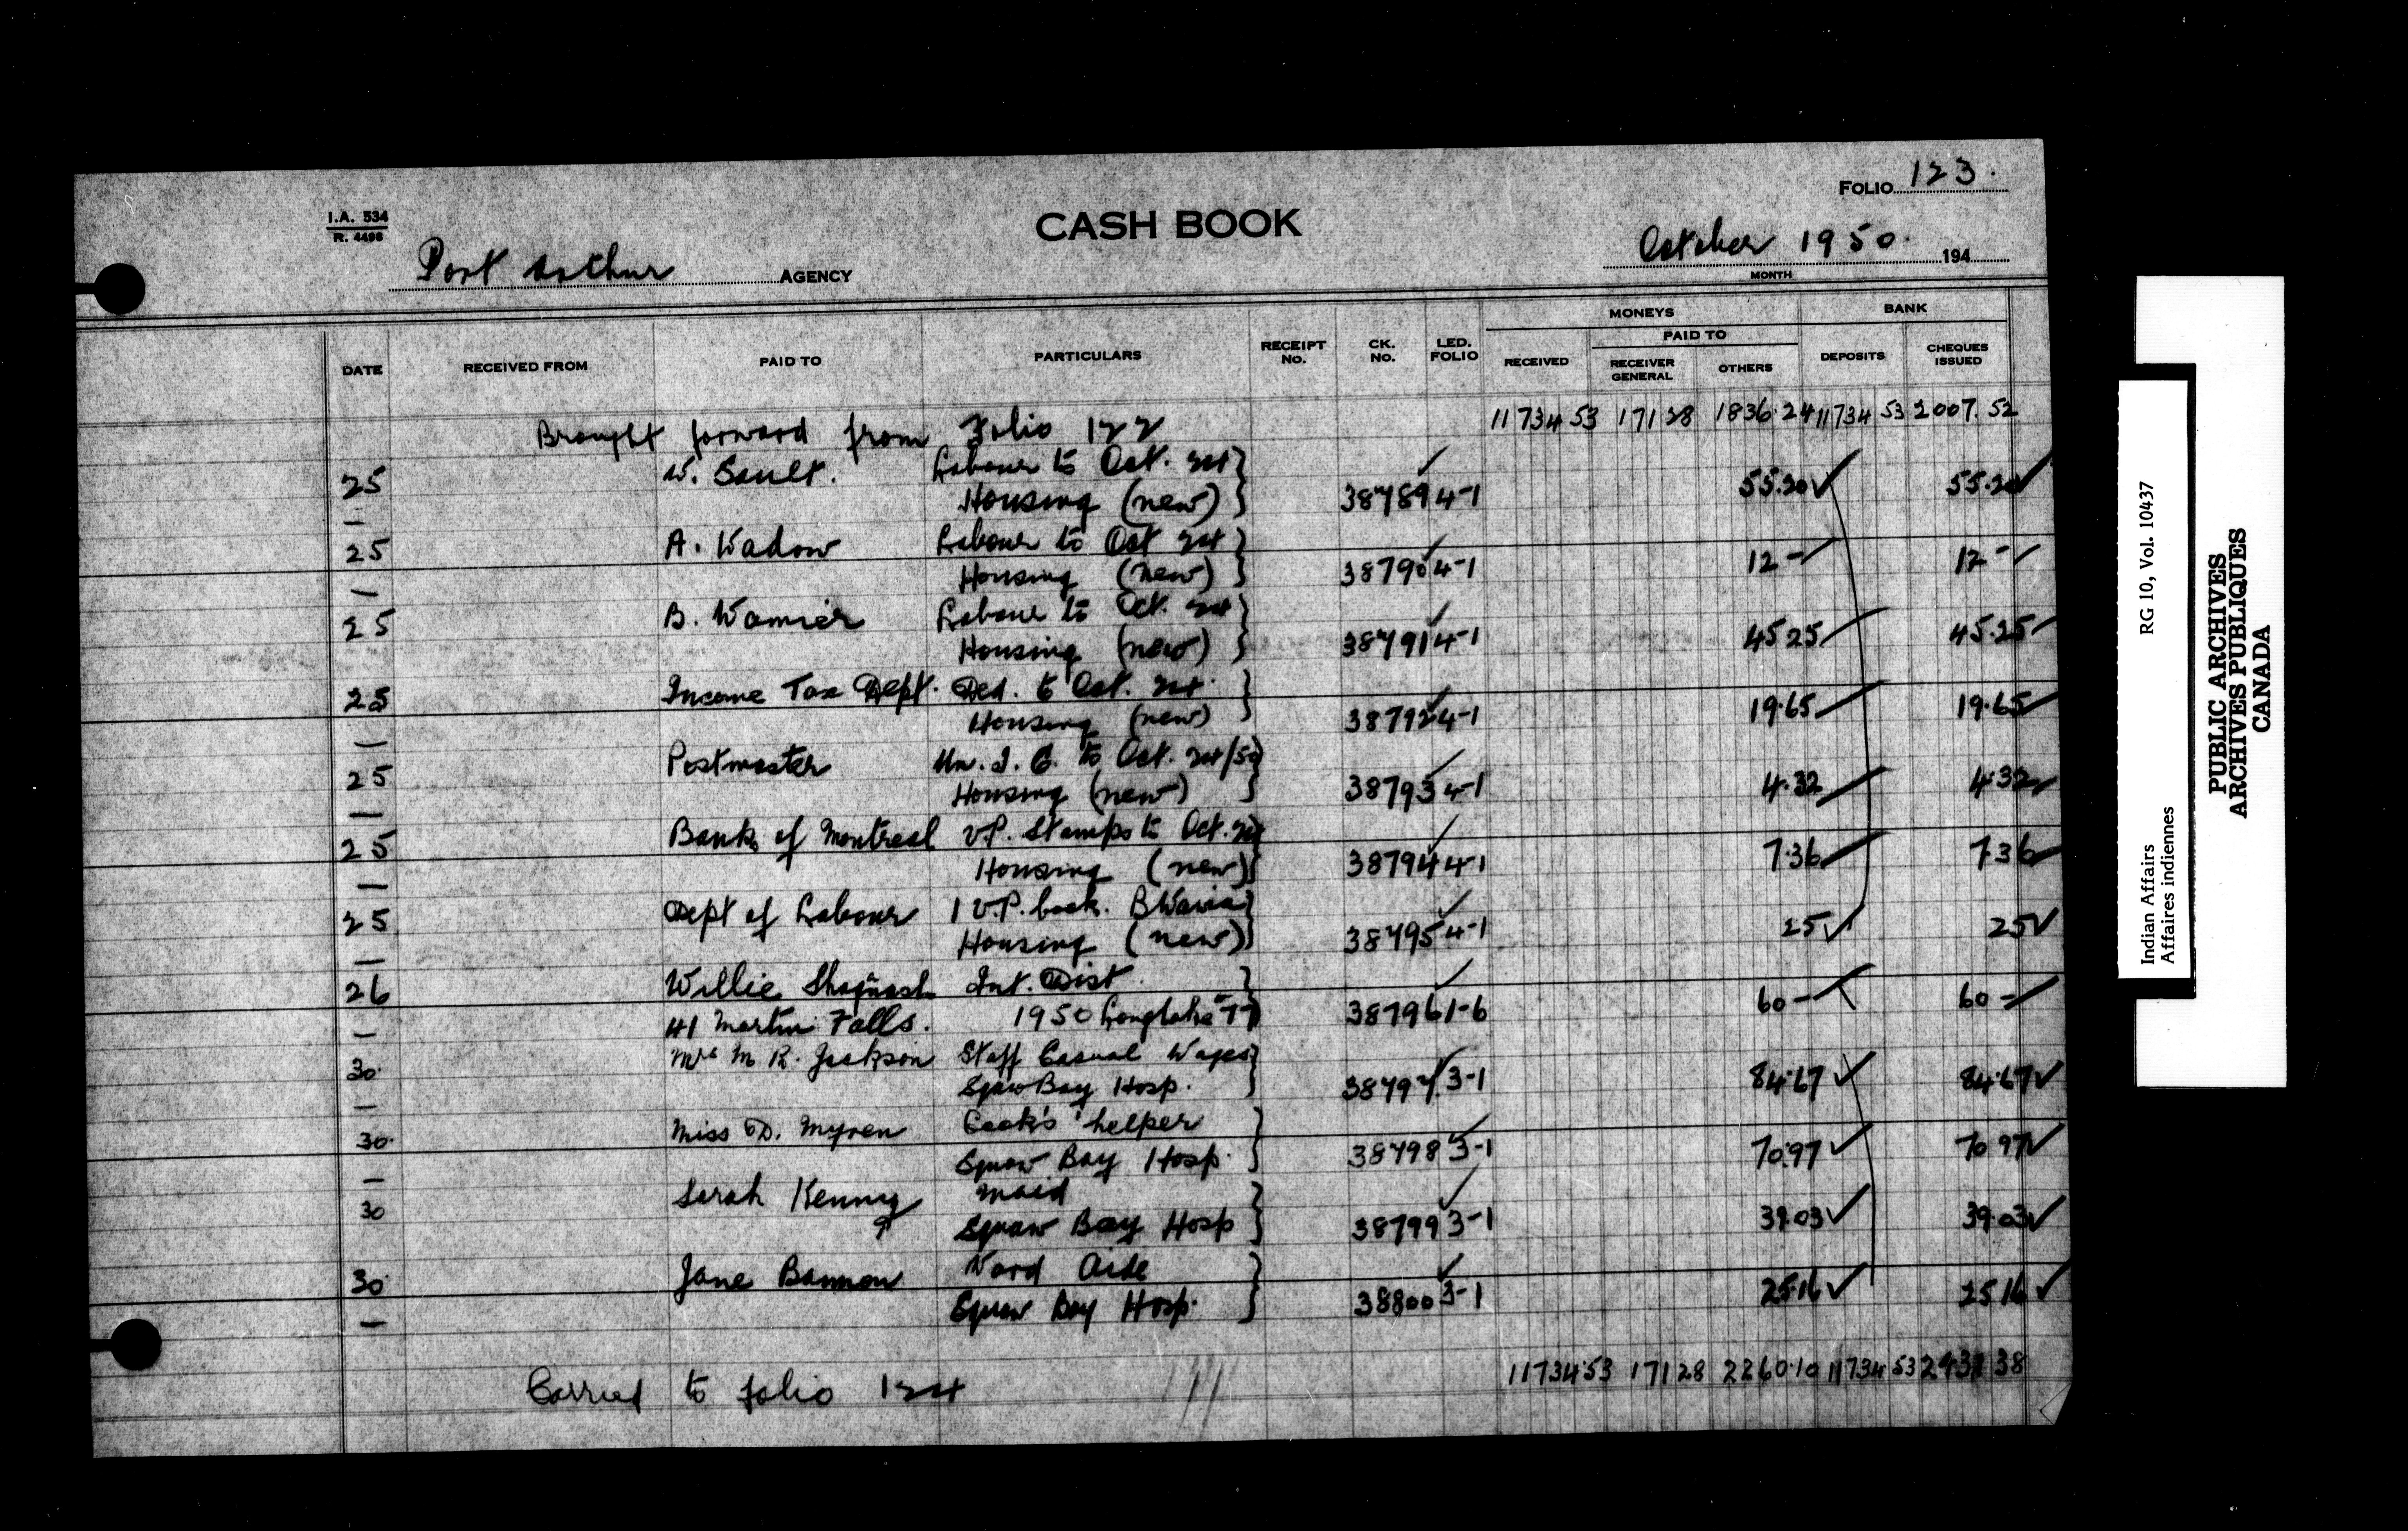 FOLIO 123.
I.A. 534
R. 4498
CASH BOOK
Port Arthur AGENCY
October 1950. 194
MONTH
MONEYS BANK
PAID TO
DATE RECEIVED FROM PAID TO PARTICULARS RECEIPT No. CK. No. LED. FOLIO RECEIVED RECEIVER GENERAL OTHERS DEPOSITS CHEQUES ISSUED
Brought forward from Folio 122 11734 53 171 28 1836.24 11734 53 2007.52
25 W. Sault. Labour to Oct. 24 }
Housing (new) } 38789 4-1 55.20 ✓ 55.20 ✓
25 A. Wadow Labour to Oct 24 }
Housing (new) } 38790 4-1 12 - 12 -
25 B. Wamier Labour to Oct. 24 }
Housing (new) } 38791 4-1 45 25 45.25
25 Income Tax Dept. Ded. to Oct. 24. }
Housing (new) } 38792 4-1 19.65 19.65
25 Postmaster Un. I. C. to Oct. 24/50 }
Housing (new) } 38793 4-1 4.32 4.32
25 Bank of Montreal V.P. Stamps to Oct. 24 }
Housing (new) } 38794 4-1 7.36 7.36
25 Dept of Labour 1 V.P. book. B
Housing (new) } 38795 4-1 25 ✓ 25 ✓
26 Willie Int. Dist. }
41 Martin Falls. 1950 Longlake 77 } 38796 1-6 60 - 60 -
30 Mrs M R. Jackson Staff Casual Wages }
Squaw Bay Hosp. } 38797 3-1 84.67 ✓ 84.67 ✓
30. Miss D. Myren Cook's helper }
Squaw Bay Hosp. } 38798 3-1 70.97 ✓ 70 97 ✓
30 Sarah Kenny Maid }
Squaw Bay Hosp } 38799 3-1 39.03 ✓ 39.03 ✓
30 Jane Bannon Ward Aide }
Squaw Bay Hosp. } 38800 3-1 25.16 ✓ 25 16 ✓
Carried to folio 124 11734.53 171 28 2260.10 11734 53 2431 38
Indian Affairs RG 10, Vol. 10437
Affaires indiennes
PUBLIC ARCHIVES
ARCHIVES PUBLIQUES
CANADA